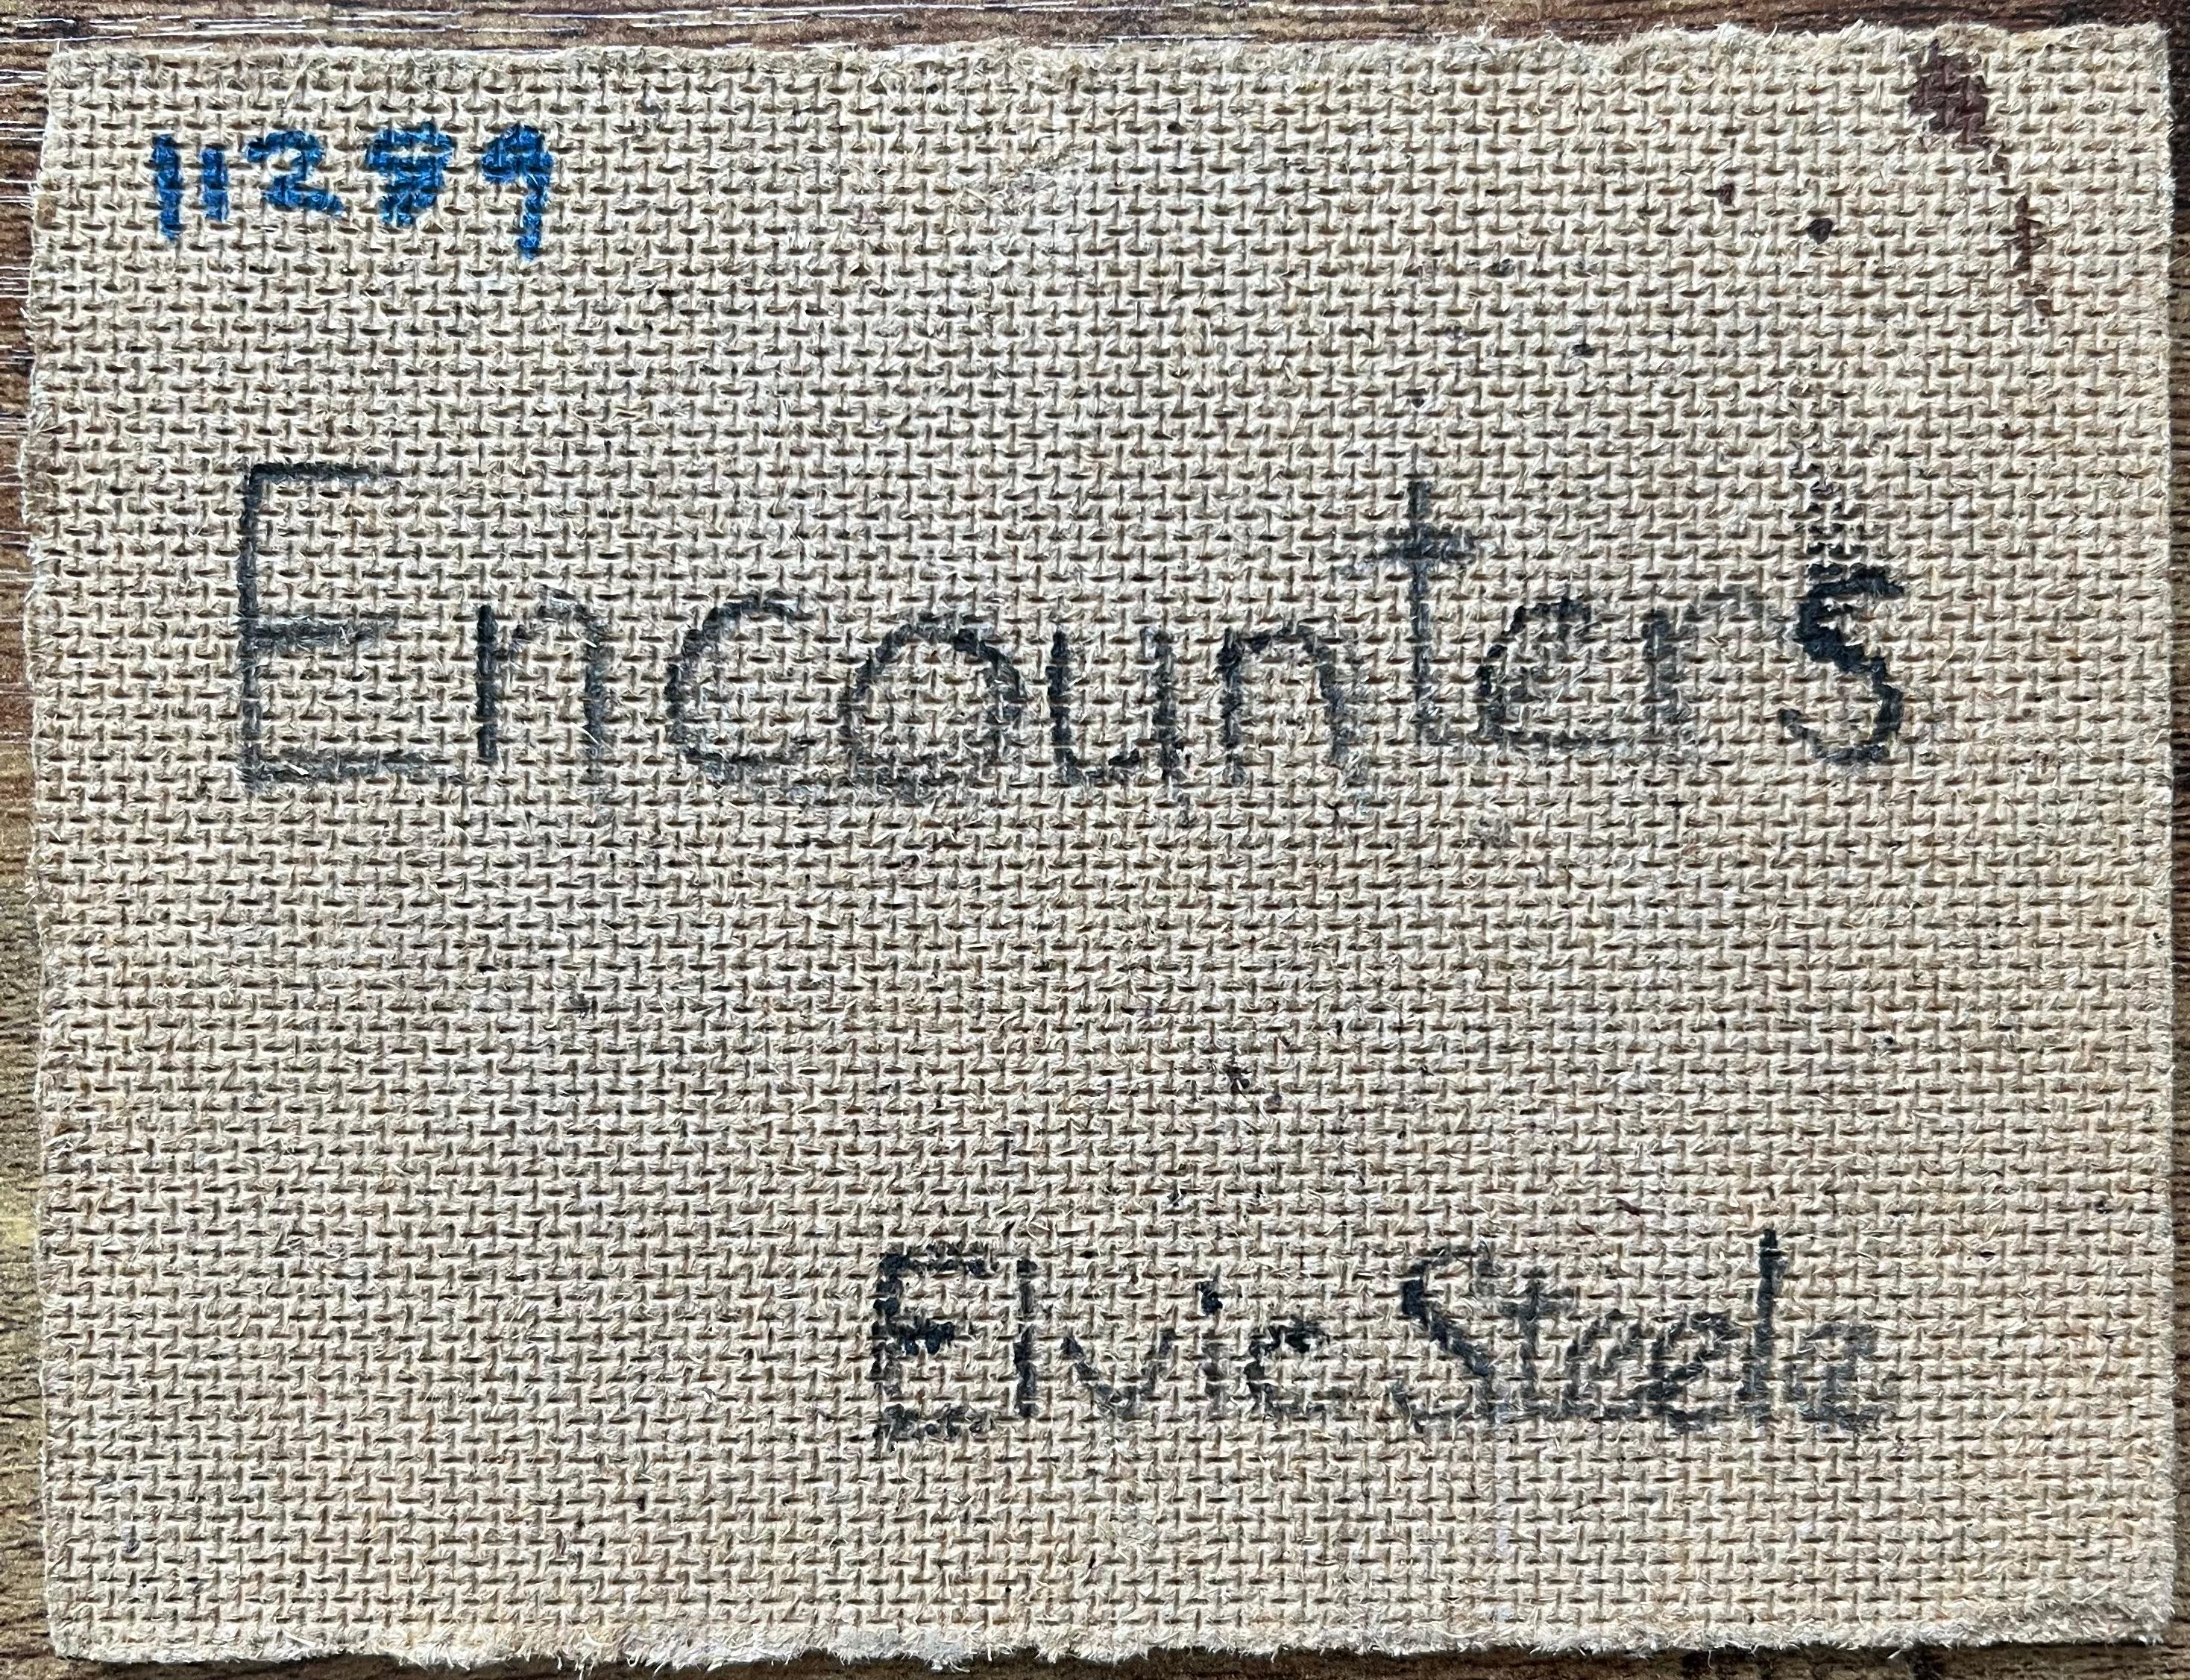 11289
Encounters
Elvic Steele